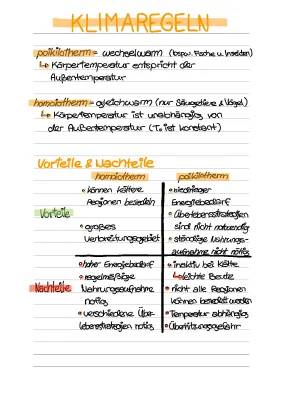 KLIMAREGELN
poikilotherm = wechselwarm (bspw. Fische u. Insekten)
↳ Körpertemperatur entspricht der
Außentemperatur
homoiotherm = gleichwarm (nur Säugetiere & Vögel)
↳ Körpertemperatur ist unabhängig von
der Außentemperatur (T ist konstant)
Vorteile & Nachteile
homoiotherm
poikilotherm
Vorteile
• können kältere
Regionen besiedeln
• großes
Verbreitungsgebiet
• niedriger
Energiebedarf
• Überlebensstrategien
sind nicht notwendig
• ständige Nahrungs-
aufnahme nicht nötig
Nachteile
• hoher Energiebedarf
• regelmäßige
Nahrungsaufnahme
nötig
• verschiedene Über-
lebensstrategien nötig
• inaktiv bei Kälte
↳ leichte Beute
• nicht alle Regionen
können besiedelt werden
• Temperatur abhängig
• Überhitzungsgefahr